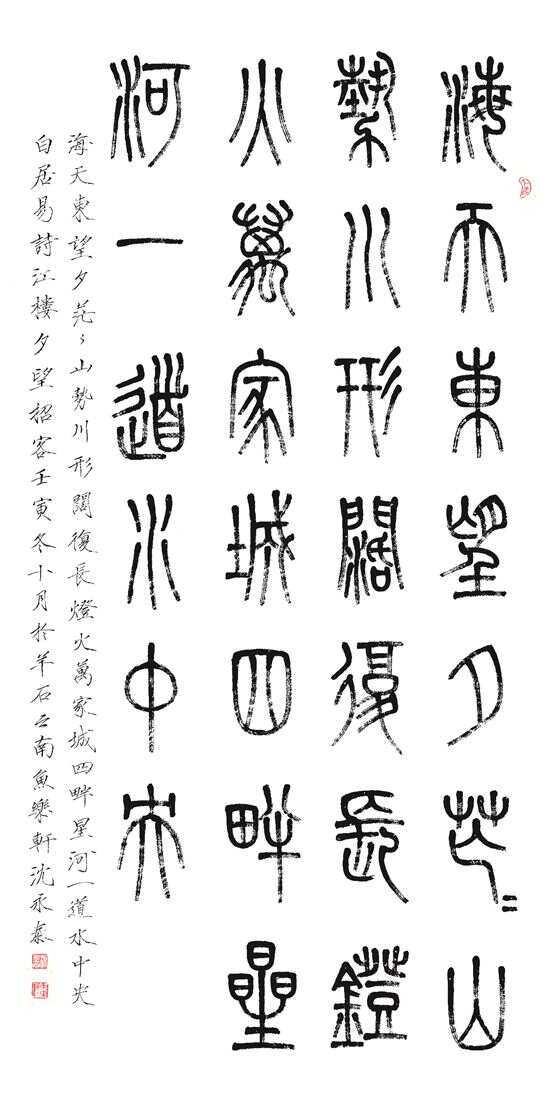 海天東望夕茫〻山
埶川形闊復長鐙
火萬家城四畔曐
河一道水中央
海天東望夕茫〻山勢川形闊復長燈火萬家城四畔星河一道水中央
白居易詩江樓夕望招客壬寅冬十月於羊石之南魚樂軒沈永泰